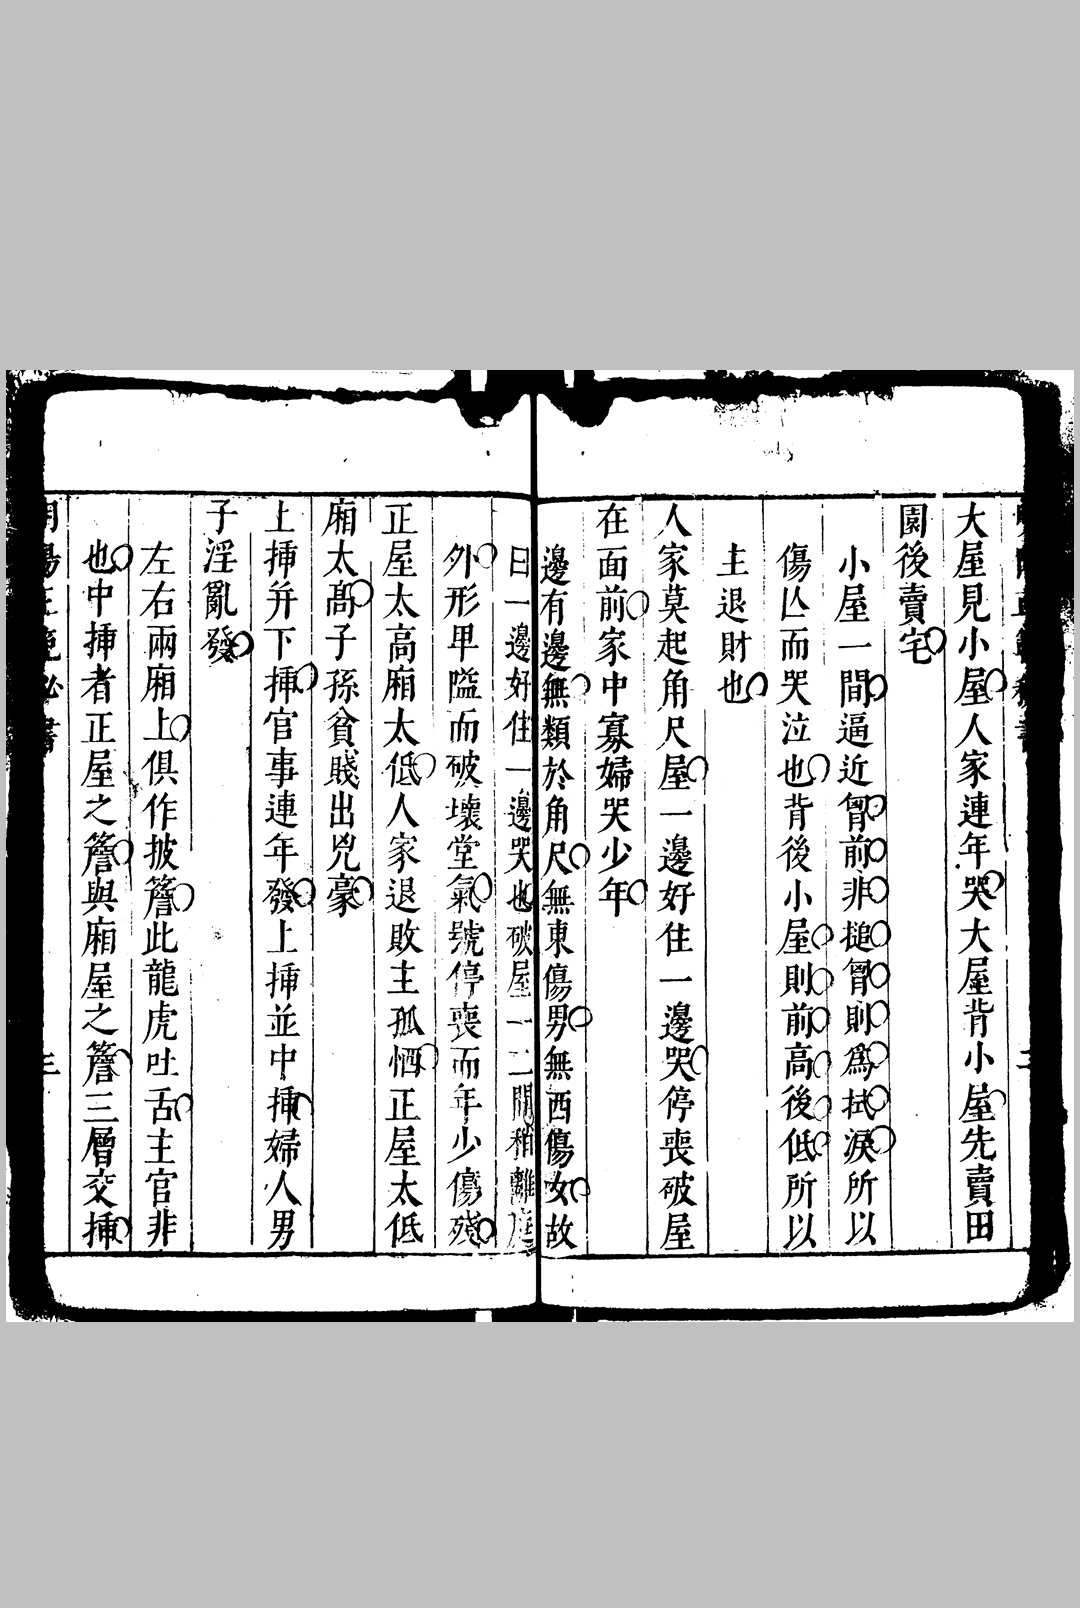 大屋見小屋人家連年哭大屋背小屋先賣田
園後賣宅
小屋一間逼近胷前非搥胷則爲拭淚所以
傷亾而哭泣也背後小屋則前高後低所以
主退財也
人家莫起角尺屋一邊好住一邊哭停喪破屋
在面前家中寡婦哭少年
邊有邊無類於角尺無東傷男無西傷女故
曰一邊好住一邊哭也破屋一二間稍離
外形卑隘而破壞堂氣號停喪而年少傷殘
正屋太高廂太低人家退敗主孤恓正屋太低
廂太髙子孫貧賤出兇豪
上揷并下揷官事連年發上揷並中揷婦人男
子淫亂發
左右兩廂上俱作披簷此龍虎吐舌主官非
也中揷者正屋之簷與廂屋之簷三層交揷
三